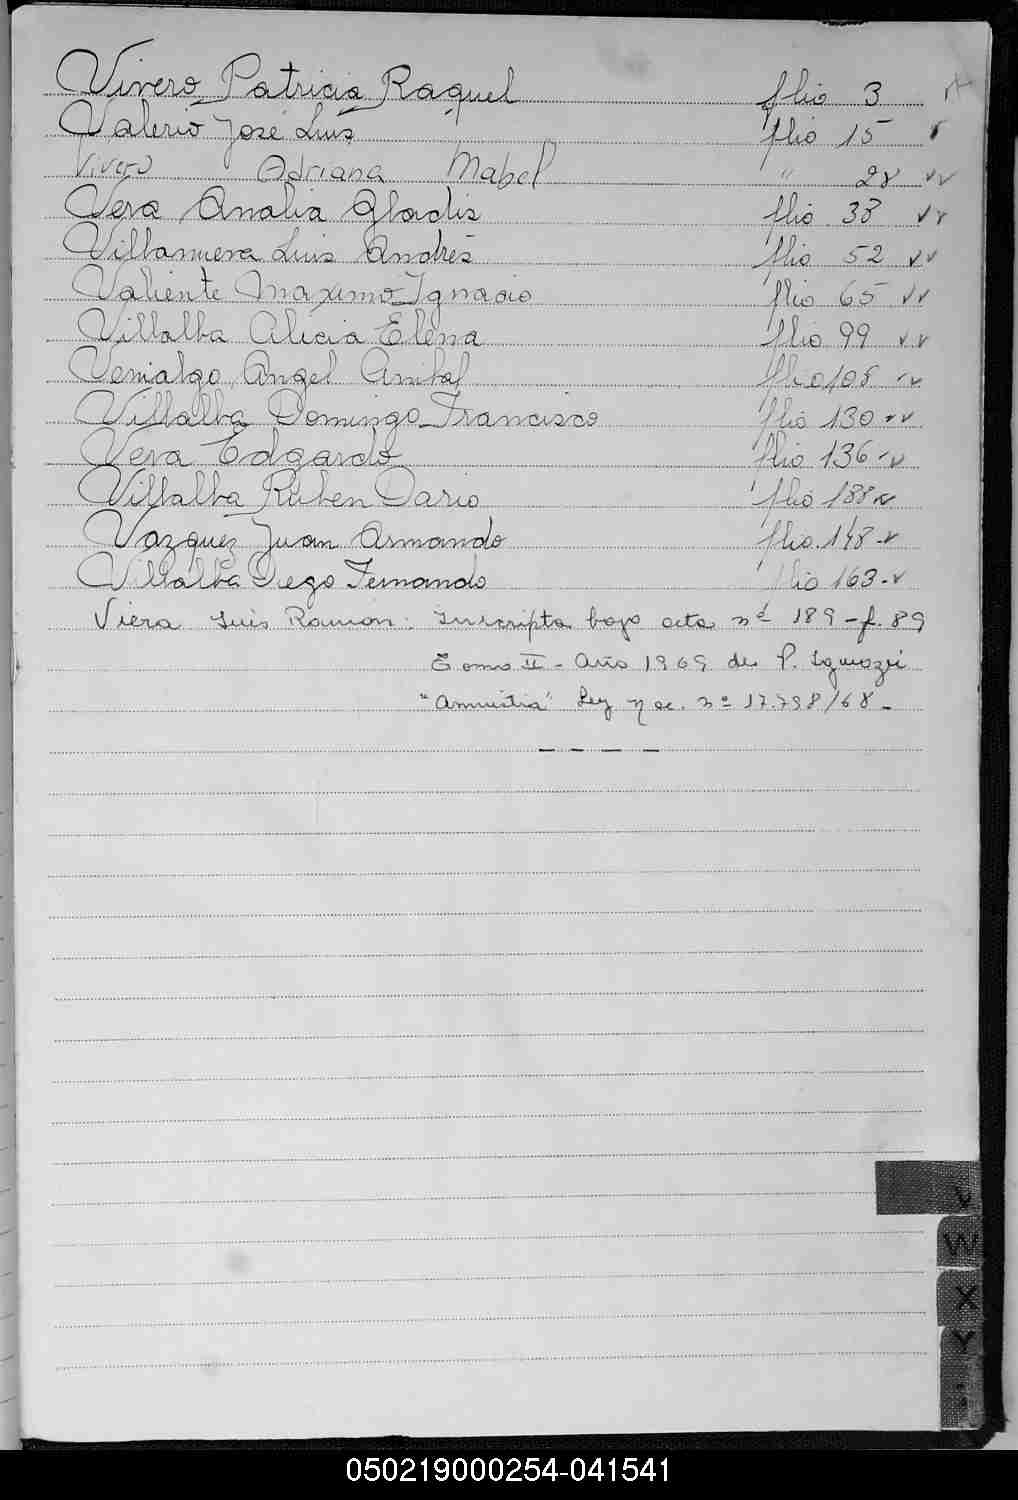 Vivero Patricia Raquel flio 3
Valerio José Luis flio 15
Vivero Adriana Mabel " 28
Vera Analia Gladis flio 38
Villanueva Luis Andrés flio 52
Valiente Maximo Ignacio flio 65
Villalba Alicia Elena flio 99
Venialgo Angel Anibal flio 108
Villalba Domingo Francisco flio 130
Vera Edgardo flio 136
Villalba Ruben Dario flio 188
Vazquez Juan Armando flio 148
Villalba Diego Fernando flio 163
Viera Luis Ramon: Inscripta bajo acta nº 189 - f. 89
Tomo II - Año 1969 de P. Iguazú
"Amnistia" Ley nac. nº 17.798/68 -
V
W
X
Y
050219000254-041541